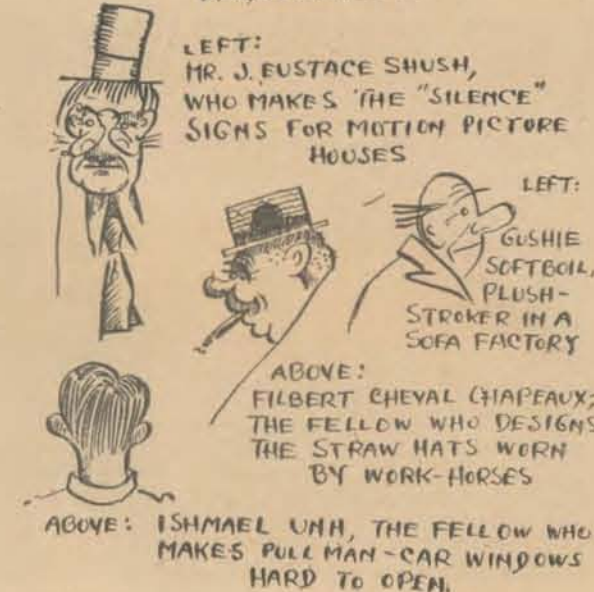 LEFT:
MR. J. EUSTACE SHUSH,
WHO MAKES THE "SILENCE"
SIGNS FOR MOTION PICTURE
HOUSES
LEFT:
GUSHIE
SOFTBOIL,
PLUSH-
STROKER IN A
SOFA FACTORY
ABOVE:
FILBERT CHEVAL CHAPEAUX;
THE FELLOW WHO DESIGNS
THE STRAW HATS WORN
BY WORK-HORSES
ABOVE: ISHMAEL UNH, THE FELLOW WHO
MAKES PULLMAN-CAR WINDOWS
HARD TO OPEN.